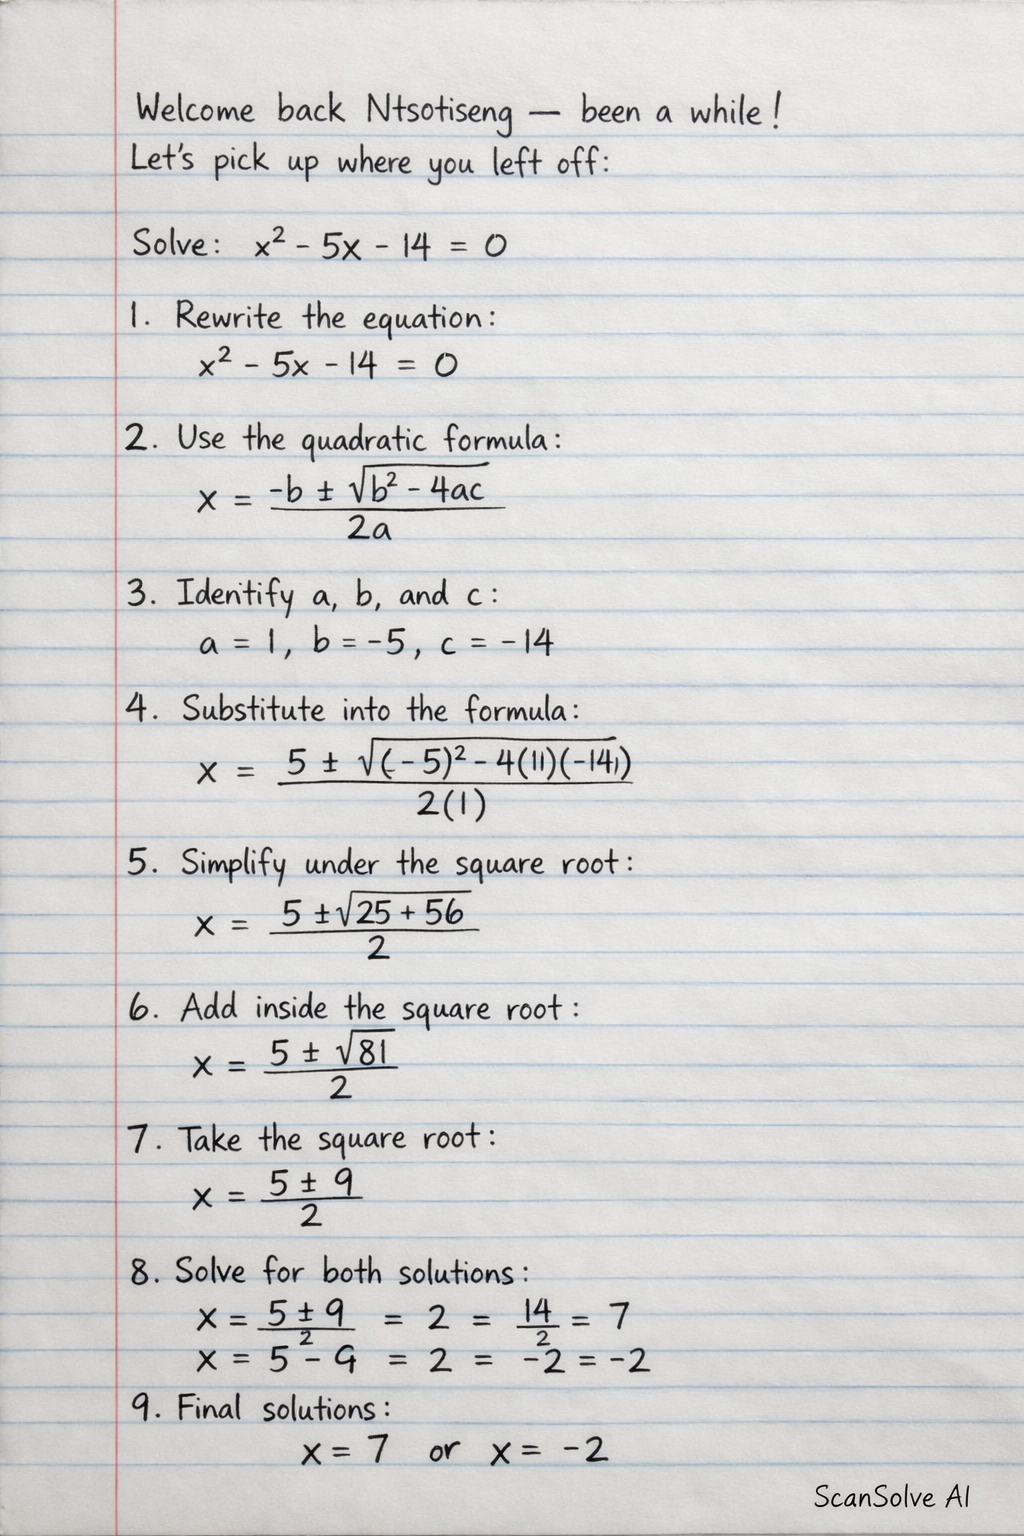 Welcome back Ntsotiseng — been a while!
Let's pick up where you left off:
Solve: x² - 5x - 14 = 0
1. Rewrite the equation:
x² - 5x - 14 = 0
2. Use the quadratic formula:
x = -b ± √b² - 4ac
2a
3. Identify a, b, and c:
a = 1, b = -5, c = -14
4. Substitute into the formula:
x = 5 ± √(-5)² - 4(11)(-14))
2(1)
5. Simplify under the square root:
x = 5 ±√25 + 56
2
6. Add inside the square root:
x = 5 ± √81
2
7. Take the square root:
x = 5 ± 9
2
8. Solve for both solutions:
x = 5 ± 9 = 2 = 14 = 7
2 2
x = 5 - 9 = 2 = -2 = -2
9. Final solutions:
x = 7 or x = -2
ScanSolve AI